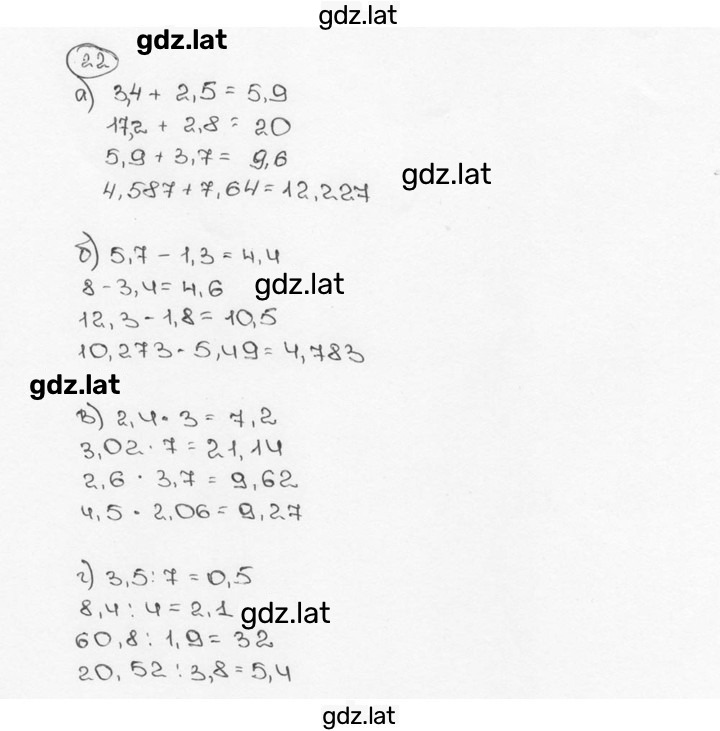 gdz.lat
gdz.lat
22
а) 3,4 + 2,5 = 5,9
17,2 + 2,8 = 20
5,9 + 3,7 = 9,6
gdz.lat
4,587 + 7,64 = 12,227
б) 5,7 - 1,3 = 4,4
8 - 3,4 = 4,6 gdz.lat
12,3 - 1,8 = 10,5
10,273 - 5,49 = 4,783
gdz.lat
в) 2,4 · 3 = 7,2
3,02 · 7 = 21,14
2,6 · 3,7 = 9,62
4,5 · 2,06 = 9,27
г) 3,5 : 7 = 0,5
8,4 : 4 = 2,1 gdz.lat
60,8 : 1,9 = 32
20,52 : 3,8 = 5,4
gdz.lat